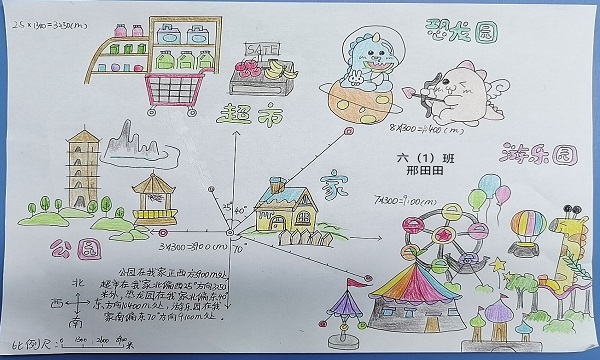 2.5×1300=3250(m)
SALE
恐龙园
超市
8×1300=10400(m)
六(1)班
邢田田
游乐园
家
25°
40°
7×1300=9100(m)
3×1300=3900(m)
70°
公园
北
西
南
公园在我家正西方3900m处,
超市在我家北偏西25°方向3250
米外,恐龙园在我家北偏东40°
东方向10400m处,游乐园在我
家南偏东70°方向9100m处.
比例尺:0 1300 2600 3900米